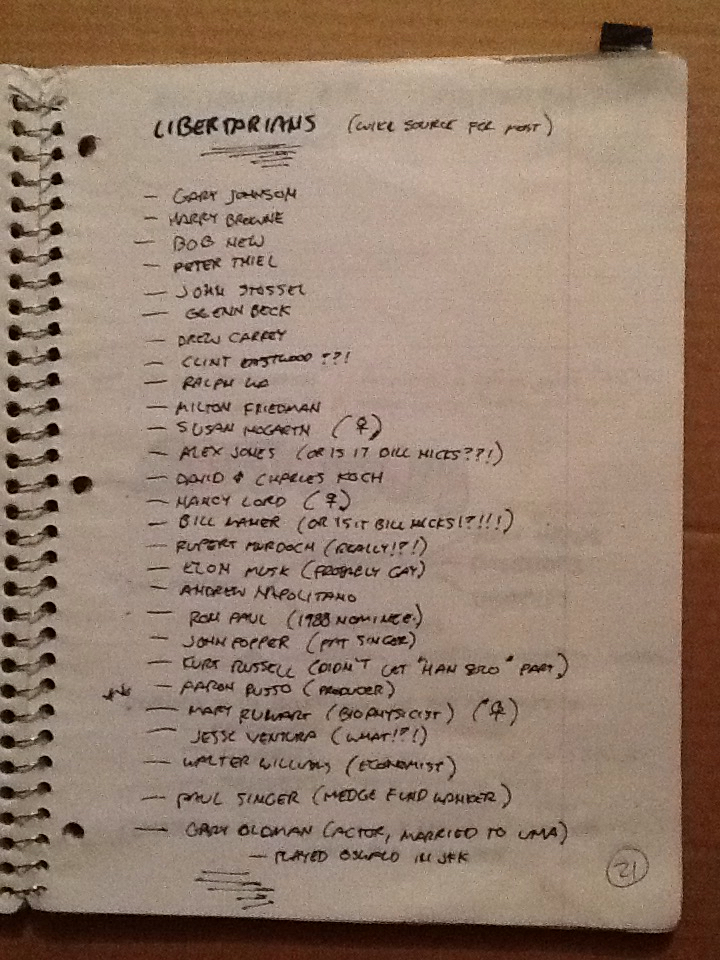 LIBERTARIANS (WIKI SOURCE FOR MOST)
— GARY JOHNSON
— HARRY BROWNE
— BOB NEW
— PETER THIEL
— JOHN STOSSEL
— GLENN BECK
— DREW CARREY
— CLINT EASTWOOD ??!
— RALPH
— MILTON FRIEDMAN
— SUSAN HOGARTH (♀)
— ALEX JONES (OR IS IT BILL HICKS??!)
— DAVID & CHARLES KOCH
— NANCY LORD (♀)
— BILL MAHER (OR IS IT BILL HICKS!?!!!)
— RUPERT MURDOCH (REALLY!?!)
— ELON MUSK (PROBABLY GAY)
— ANDREW NAPOLITANO
— RON PAUL (1988 NOMINEE)
— JOHN POPPER (FAT SINGER)
— KURT RUSSELL (DIDN'T GET "HAN SOLO" PART)
— AARON RUSSO (PRODUCER)
— MARY RUWART (BIOPHYSICIST) (♀)
— JESSE VENTURA (WHAT!?!)
— WALTER WILLIAMS (ECONOMIST)
— PAUL SINGER (HEDGE FUND WANKER)
— GARY OLDMAN (ACTOR, MARRIED TO UMA)
— PLAYED OSWALD IN JFK
21